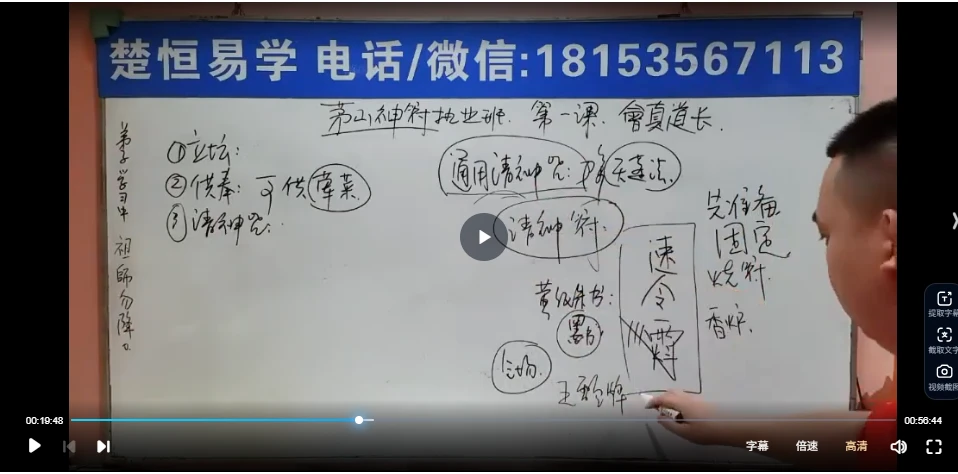 楚恒易学 电话/微信:18153567113
茅山神符执业班 第一课 曾真道长
弟子学习中 祖師勿降
①立坛:
②供奉: 可供荤菜
③请神咒:
通用请神咒:
请神符
黄纸朱书:
黑
速令
先准备
固定
烧符
香炉
00:19:48
00:56:44
字幕
倍速
高清
提取字幕
截取文字
视频截图